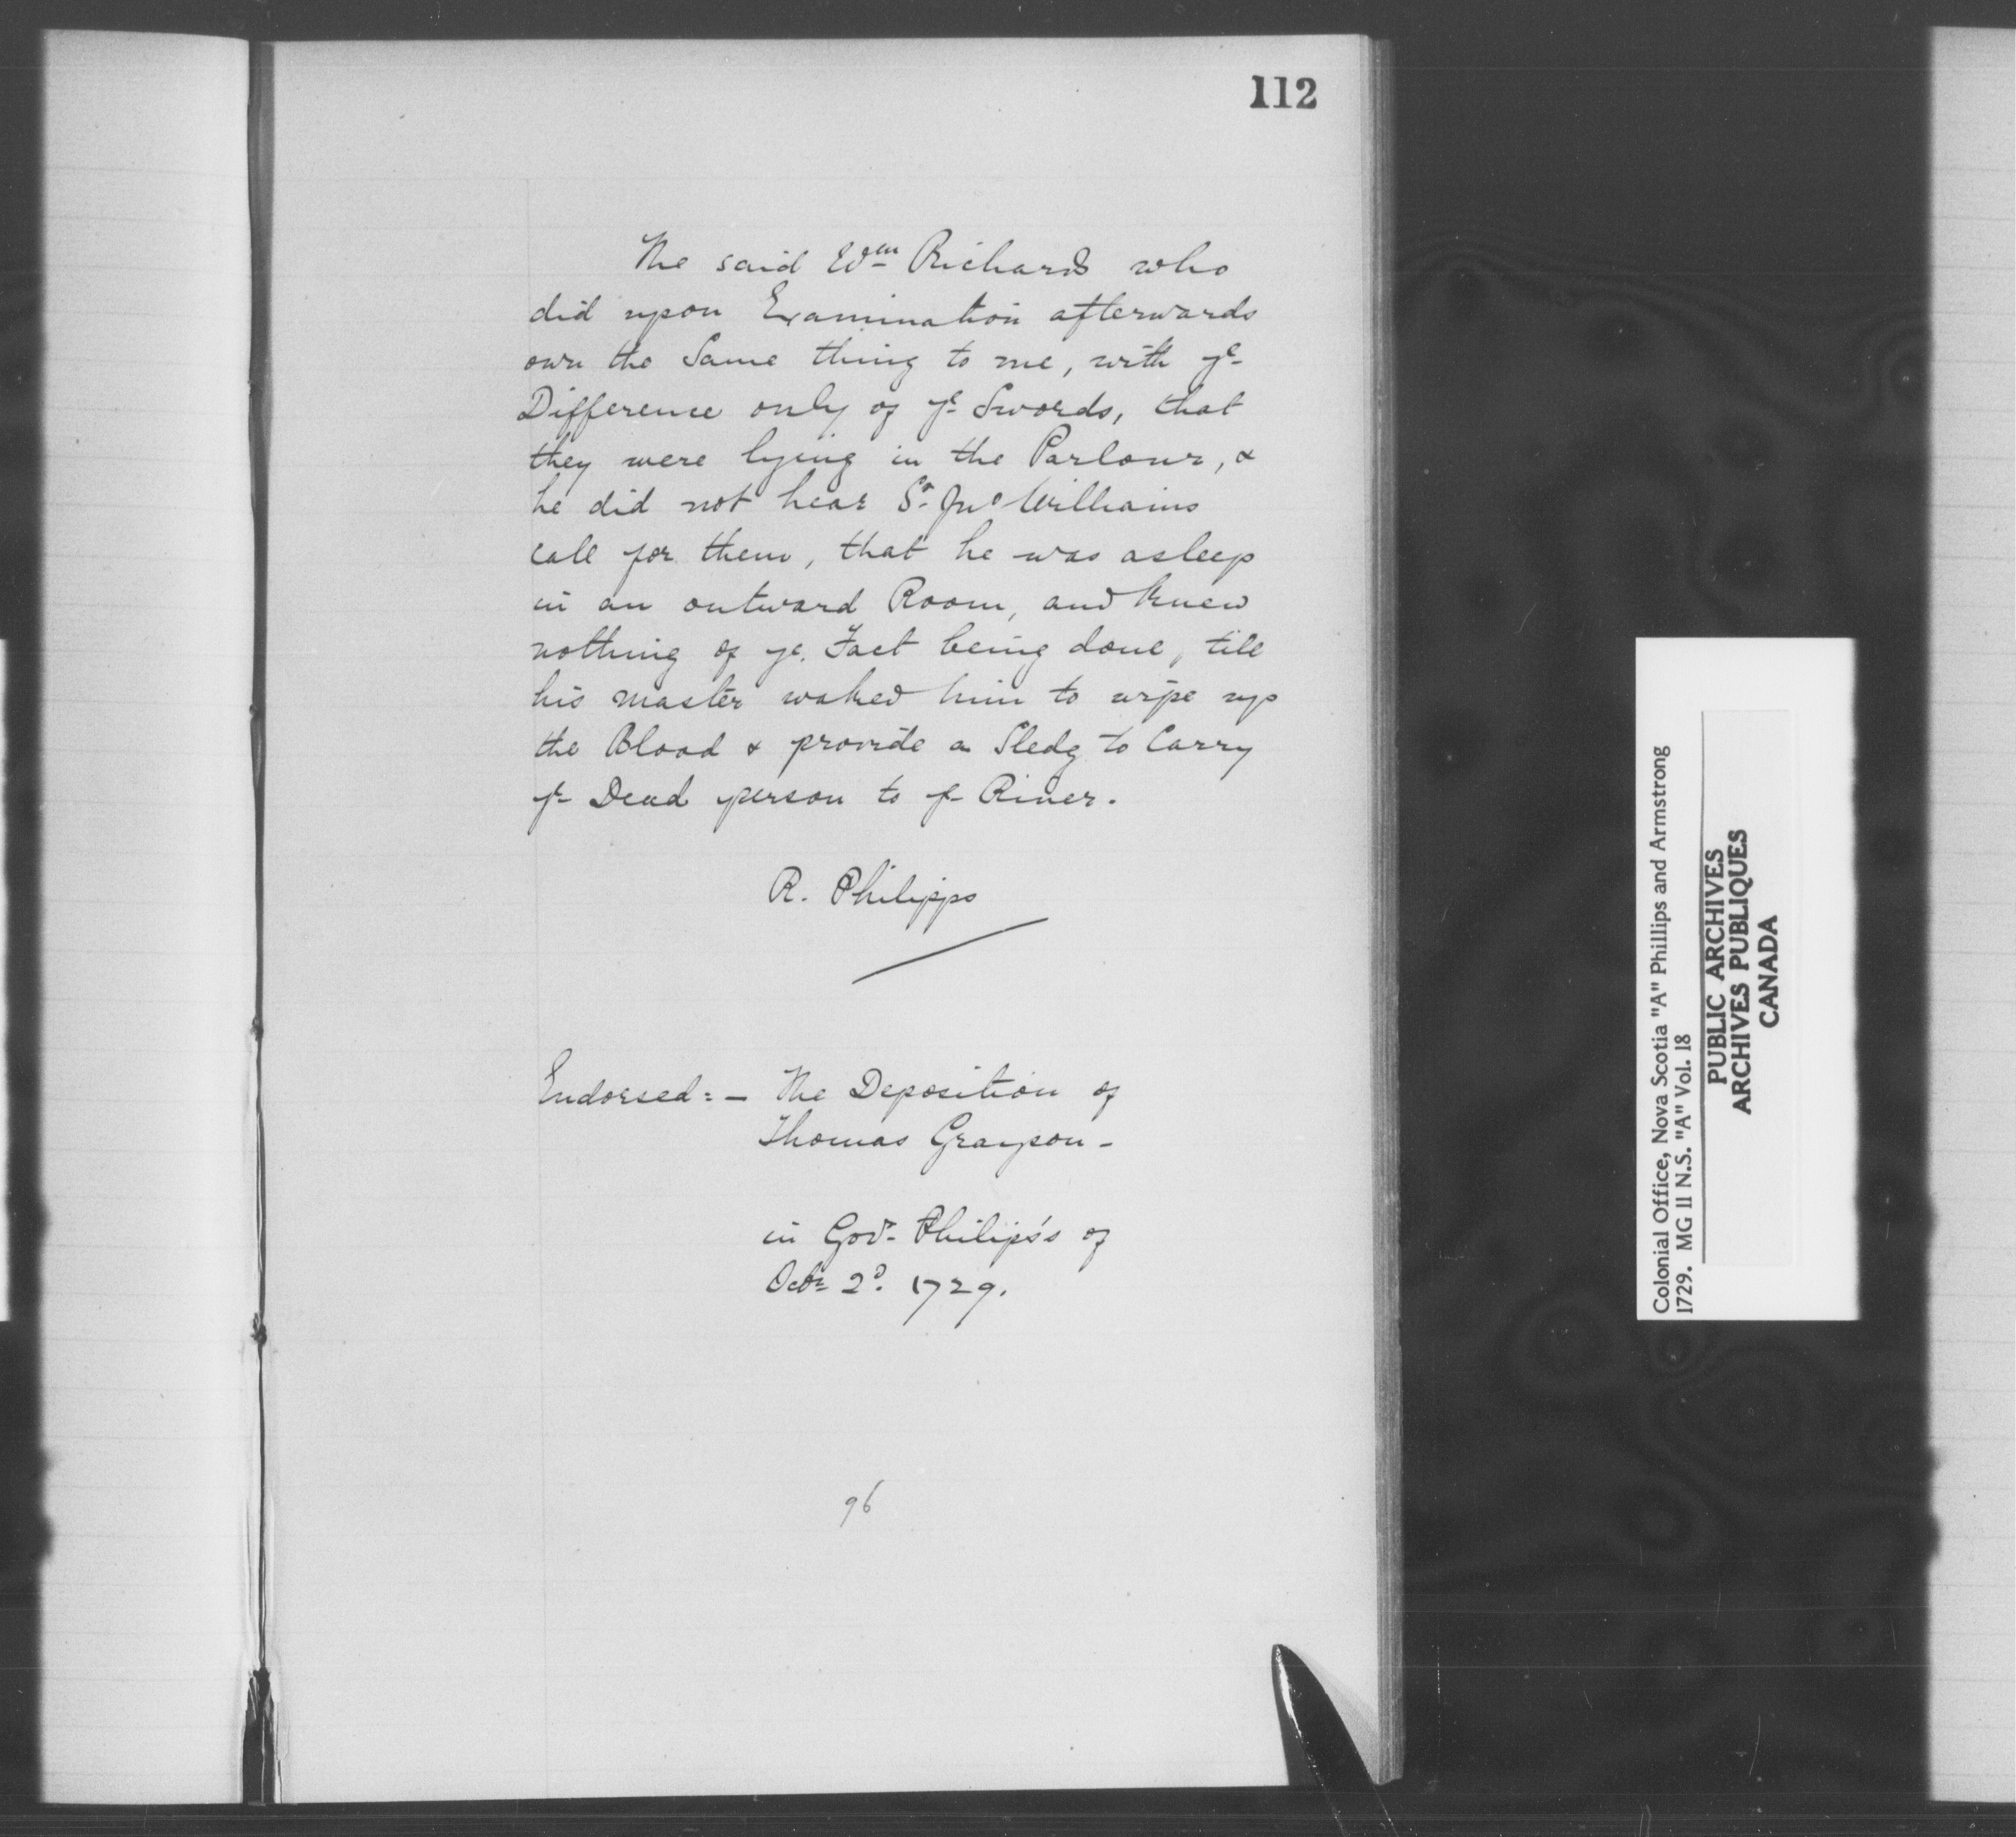 112
The said Wm Richards who
did upon Examination afterwards
own the Same thing to me, with ye
Difference only of ye Swords, that
they were lying in the Parlour, &
he did not hear Sr Jno Williams
call for them, that he was asleep
in an outward Room, and knew
nothing of ye. Fact being done, till
his master waked him to wipe up
the Blood & provide a Sledg to Carry
ye Dead person to ye River.
R. Philipps
Endorsed: - The Deposition of
Thomas Grayson -
in Govr Philips's of
Octr 2d. 1729.
96
Colonial Office, Nova Scotia "A" Phillips and Armstrong
1729. MG 11 N.S. "A" Vol. 18
PUBLIC ARCHIVES
ARCHIVES PUBLIQUES
CANADA